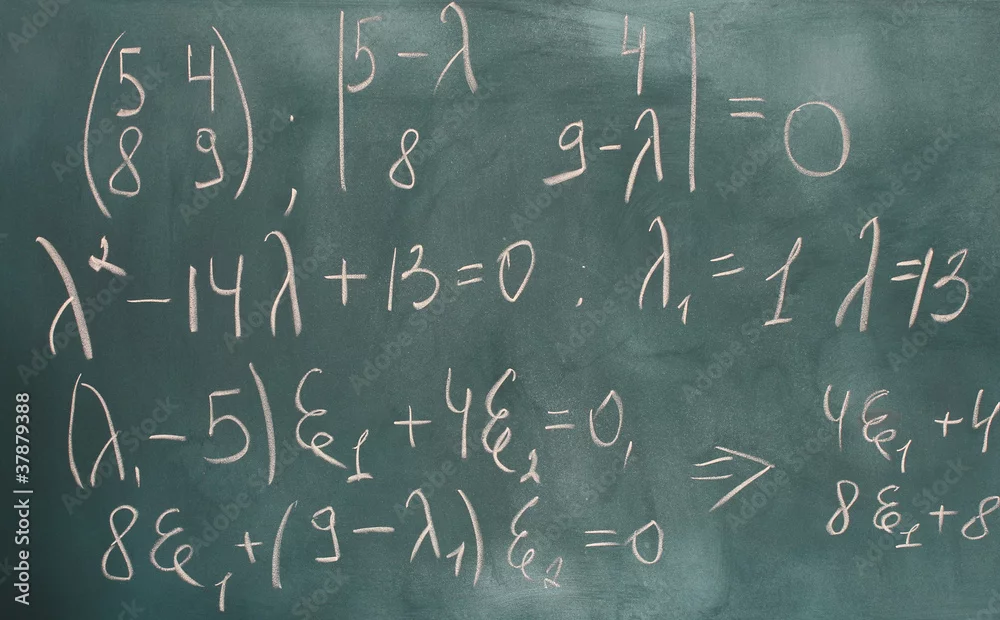 (5 4
8 9); |5-λ 4
8 9-λ| = 0
λ² - 14λ + 13 = 0. λ₁ = 1 λ = 13
(λ₁ - 5)ξ₁ + 4ξ₂ = 0, ⇒ 4ξ₁ + 4
8ξ₁ + (9 - λ₁)ξ₂ = 0 8ξ₁ + 8
Adobe Stock | #37879388